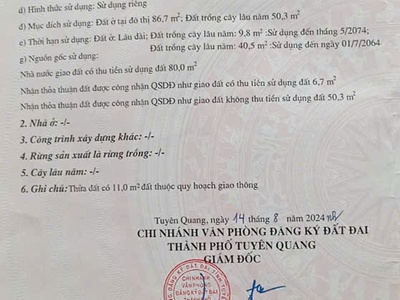 d) Hình thức sử dụng: Sử dụng riêng
đ) Mục đích sử dụng: Đất ở tại đô thị 86,7 m²; Đất trồng cây lâu năm 50,3 m²
e) Thời hạn sử dụng: Đất ở: Lâu dài; Đất trồng cây lâu năm: 9,8 m² :Sử dụng đến tháng 5/2074;
Đất trồng cây lâu năm: 40,5 m² :Sử dụng đến ngày 01/7/2064
g) Nguồn gốc sử dụng:
Nhà nước giao đất có thu tiền sử dụng đất 80,0 m²
Nhận thỏa thuận đất được công nhận QSDĐ như giao đất có thu tiền sử dụng đất 6,7 m²
Nhận thỏa thuận đất được công nhận QSDĐ như giao đất không thu tiền sử dụng đất 50,3 m²
2. Nhà ở: -/-
3. Công trình xây dựng khác: -/-
4. Rừng sản xuất là rừng trồng: -/-
5. Cây lâu năm: -/-
6. Ghi chú: Thửa đất có 11,0 m² đất thuộc quy hoạch giao thông
Tuyên Quang, ngày 14 tháng 8 năm 2024
CHI NHÁNH VĂN PHÒNG ĐĂNG KÝ ĐẤT ĐAI
THÀNH PHỐ TUYÊN QUANG
GIÁM ĐỐC
CHI NHÁNH
VĂN PHÒNG
ĐĂNG KÝ ĐẤT ĐAI